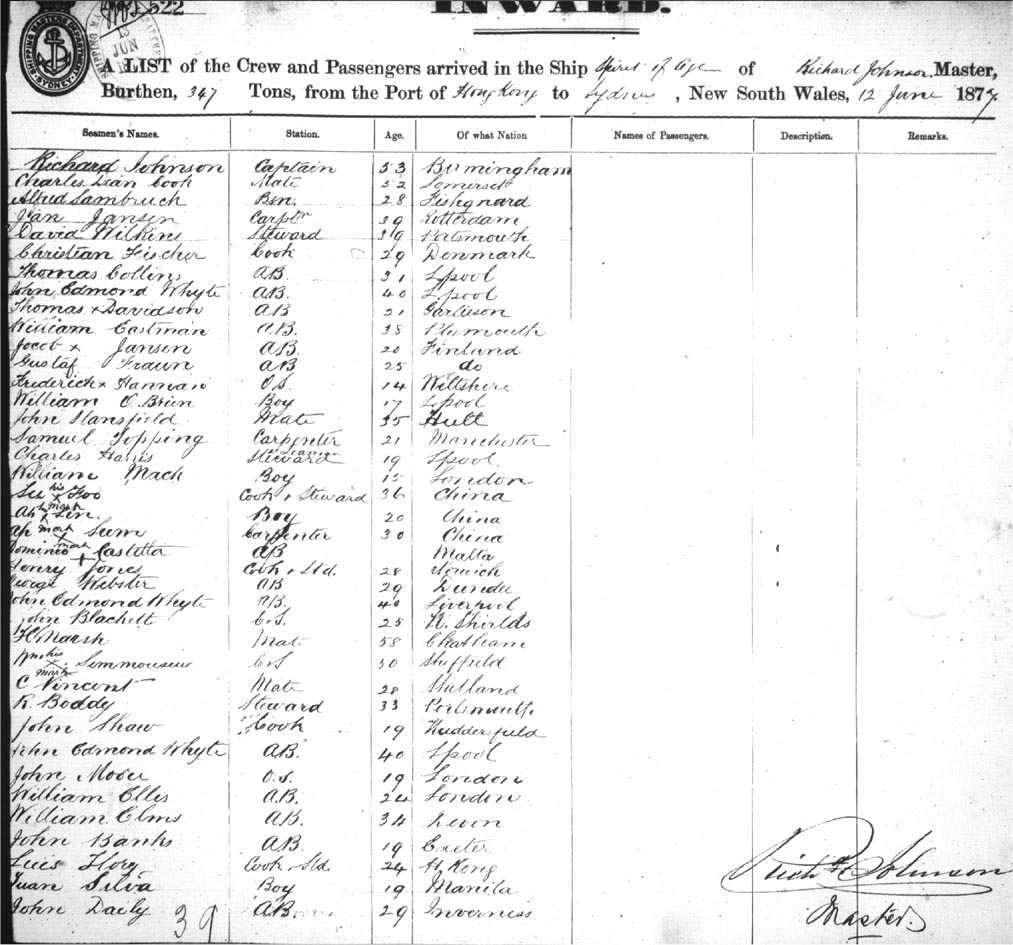 522
INWARD.
SHIPPING MASTERS DEPARTMENT SYDNEY
13 JUN
A LIST of the Crew and Passengers arrived in the Ship Spirit of Age of Richard Johnson, Master,
Burthen, 347 Tons, from the Port of Hong Kong to Sydney, New South Wales, 12 June 1877.
Seamen's Names. Station. Age. Of what Nation Names of Passengers. Description. Remarks.
Richard Johnson Captain 53 Birmingham
Charles Dean Cook Mate 52 Somerset
Alfred Lambruch Bsn. 28 Fishguard
Jan Jansen Carptr 39 Rotterdam
David Wilkins Steward 39 Portsmouth
Christian Fischer Cook 29 Denmark
Thomas Collins AB 31 Lpool
John Edmond Whyte AB. 40 Lpool
Thomas x Davidson AB 21
William Eastman A.B. 38 Plymouth
Jacob x Jansen A.B. 20 Finland
Gustaf AB 25 do
Frederich x Hannan O.S. 14 Wiltshire
William O. Brien Boy 17 Lpool
John Stansfield Mate 35 Hull
Samuel Topping Carpenter 21 Manchester
Charles Harris Steward 19 Lpool.
William Mack Boy 15 London
his x Foo Cook & Steward 36 China
Ah x Sen. mark Boy 20 China
Ah x mark Sum Carpenter 30 China
Dominico mark + Castetta AB Malta
Henry Jones Cook & Std. 28 Norwich
George Webster AB 29 Dundee
John Edmond Whyte AB. 40 Liverpool
John Blackett O.S 25 N. Shields
H. Marsh Mate 58 Chatham
Wm his x mark O.S 30 Sheffield
C Vincent Mate 28 Shetland
R. Boddy Steward 33 Portsmouth
John Shaw Cook 19 Huddersfield
John Edmond Whyte A.B. 40 Lpool
John Moore O.S. 19 London
William Ellis A.B. 24 London
William Elms A.B. 34 Devon
John Banks A.B. 19 Exeter
Luis Flory Cook & Std 24 H. Kong
Juan Silva Boy 19 Manila
John Daily A.B. 29 Inverness
39
Richd Johnson
Master.